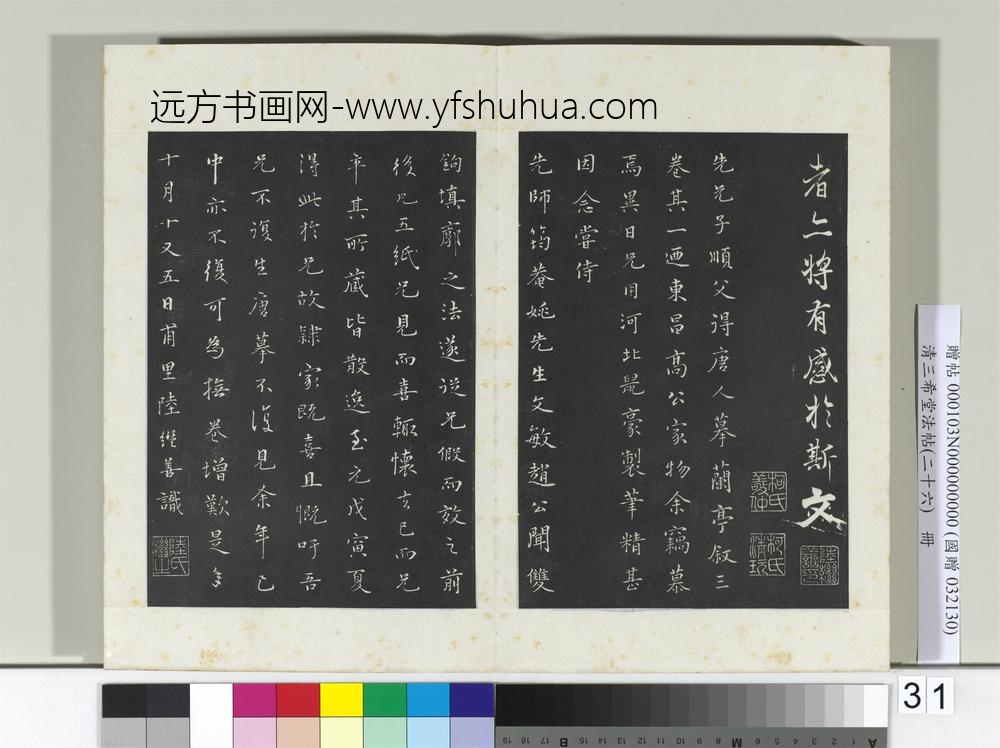 远方书画网-www.yfshuhua.com
者亦將有感於斯文
先兄子順父得唐人摹蘭亭叙三
卷其一迺東昌高公家物余竊慕
焉異日兄用河北鼠豪製筆精甚
因念嘗侍
先師筠菴姚先生文敏趙公聞雙
鉤填廓之法遂從兄假而效之前
後凡五紙兄見而喜輙懷去已而兄
卒其所藏皆散逸至元戊寅夏
得此於兄故隸家既喜且慨吁吾
兄不復生唐摹不復見余年已
中亦不復可為撫卷增歎是年
十月十又五日甫里陸繼善識
柯氏
清玩
贈帖 000103N000000000 (國贈 032130)
清三希堂法帖(二十六) 冊
31
19 18 17 B 15 14 13 12 11 10 9 8 M 6 5 4 3 2 1 A